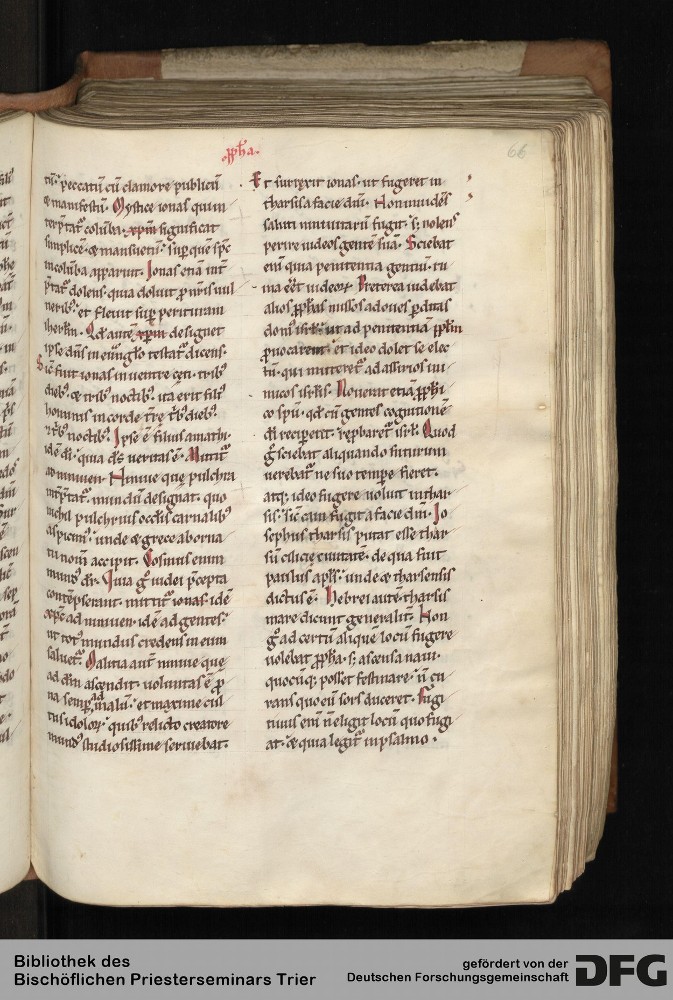 ꝓph̄a.
66
tiū. peccatū cū clamore publicū
⁊ manifestū. Mystice ionas qui in
terp̄tat᷑ colūba. xp̄m significat
simplicē. ⁊ mansuetū. sup quē sp̄c
in colūba apparuit. Ionas etiā int̄
p̄tat᷑ dolens. quia doluit ꝓ nr̄is uul
nerib᷒. et fleuit sup perituram
ihrl̄m. Qd̄ autē xp̄m designet
ipse dn̄s in euu̅gl̄o testat᷑ dicens.
Sic̄ fuit ionas in uentre ceti. trib᷒
dieb᷒. ⁊ trib᷒ noctib᷒. ita erit fili᷒
hominis in corde tr̄re. tʳb᷒ dieb᷒.
⁊ tʳb᷒ noctib᷒. Ipse ē filius amathi.
idē dī. quia ds̄ ueritas ē. Mittit᷑
ad niniuen. Niniue que pulchra
int̄p̄tat᷑. mundū designat. quo
nichil pulchrius occl̄is carnalib᷒
aspicim᷒. unde ⁊ grece ab orna
tu nom̄ accipit. Cosmus enim
mund᷒ dr̄. Quia gͦ iudei p̄cepta
contēpserant. mittit᷑ ionas. idē
xp̄c ad niniuen. idē ad gentes.
ut tot᷒ mundus credens in eum
saluet᷑. Malitia aut̄ niniue que
ad dm̄ ascendit. uoluntas ē ꝓ
na semper ad malū. et maxime cul
tus idolor̄. quib᷒ relicto creatore
mund᷒ studiosissime seruiebat.
Et surrexit ionas. ut fugeret in
tharsis a facie dn̄i. Non inuidēs
saluti niniuitarū fugit. s; nolens
perire iudeos gentē suā. Sciebat
eni̅ quia penitentia gentiū. ru
ina eēt iudeoꝝ. Preterea uidebat
alios ꝓph̄as missos ad oues ꝑditas
dom᷒ isrl̄. ut ad penitentiā ppl̄m
ꝓuocarent. et ideo dolet se elec
tū. qui mitteret᷑ ad assirios ini
micos isrl̄is. Nouerat etiā ꝓph̄i
co spū. qd̄ cū gentes cognitionē
dī reciperent. repbaret᷑ isrl̄. Quod
gͦ sciebat aliquando futurum
uerebat᷑ ne suo tempe fieret.
atq; ideo fugere uoluit in thar
sis. sic̄ cain fugit a facie dn̄i. Io
sephus tharsis putat esse thar
sū cilicie ciuitatē. de qua fuit
paulus apl̄s. unde ⁊ tharsensis
dictus ē. Hebrei autē tharsis
mare dicunt generalit̄. Non
gͦ ad certū aliquē locū fugere
uolebat ꝓph̄a. s; ascensa naui.
quocūq; posset festinare. n̄ cu
rans quo eū sors duceret. Fugi
tiuus eni̅ n̄ eligit locū quo fugi
at. ⁊ quia legit᷑ in psalmo.
Bibliothek des
Bischöflichen Priesterseminars Trier
gefördert von der
Deutschen Forschungsgemeinschaft
DFG